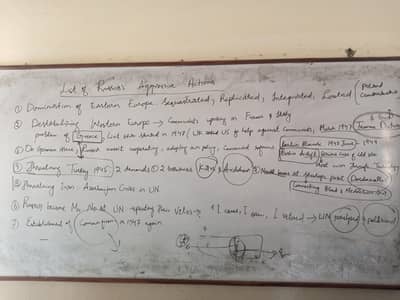 List of Russia's Aggressive Actions
① Domination of Eastern Europe. Sequestrated, Replicated, Integrated, Looted (Poland Czechoslovakia
② Destabilising Western Europe → Communists uprising in France & Italy
problem of Greece, Civil war started in 1947 / UK asked US to help against Communists, March 1947 Truman
③ On German issue, Russia not cooperating, adopting own policy, Berlin Blockade 1948 June - 1949
Berlin Airlift
④ Threatening Turkey 1945 2 demands ① 2 provinces Kars and Ardahan ② Naval base at Dardanelles
Connecting Black & Mediterranean
⑤ Threatening Iran - Azerbaijan Crisis in UN.
⑥ Russia became Mr. No at UN repeating their Vetoes → "I came, I saw, I vetoed → UN paralysed & politicised
⑦ Establishment of Cominform in 1947 again